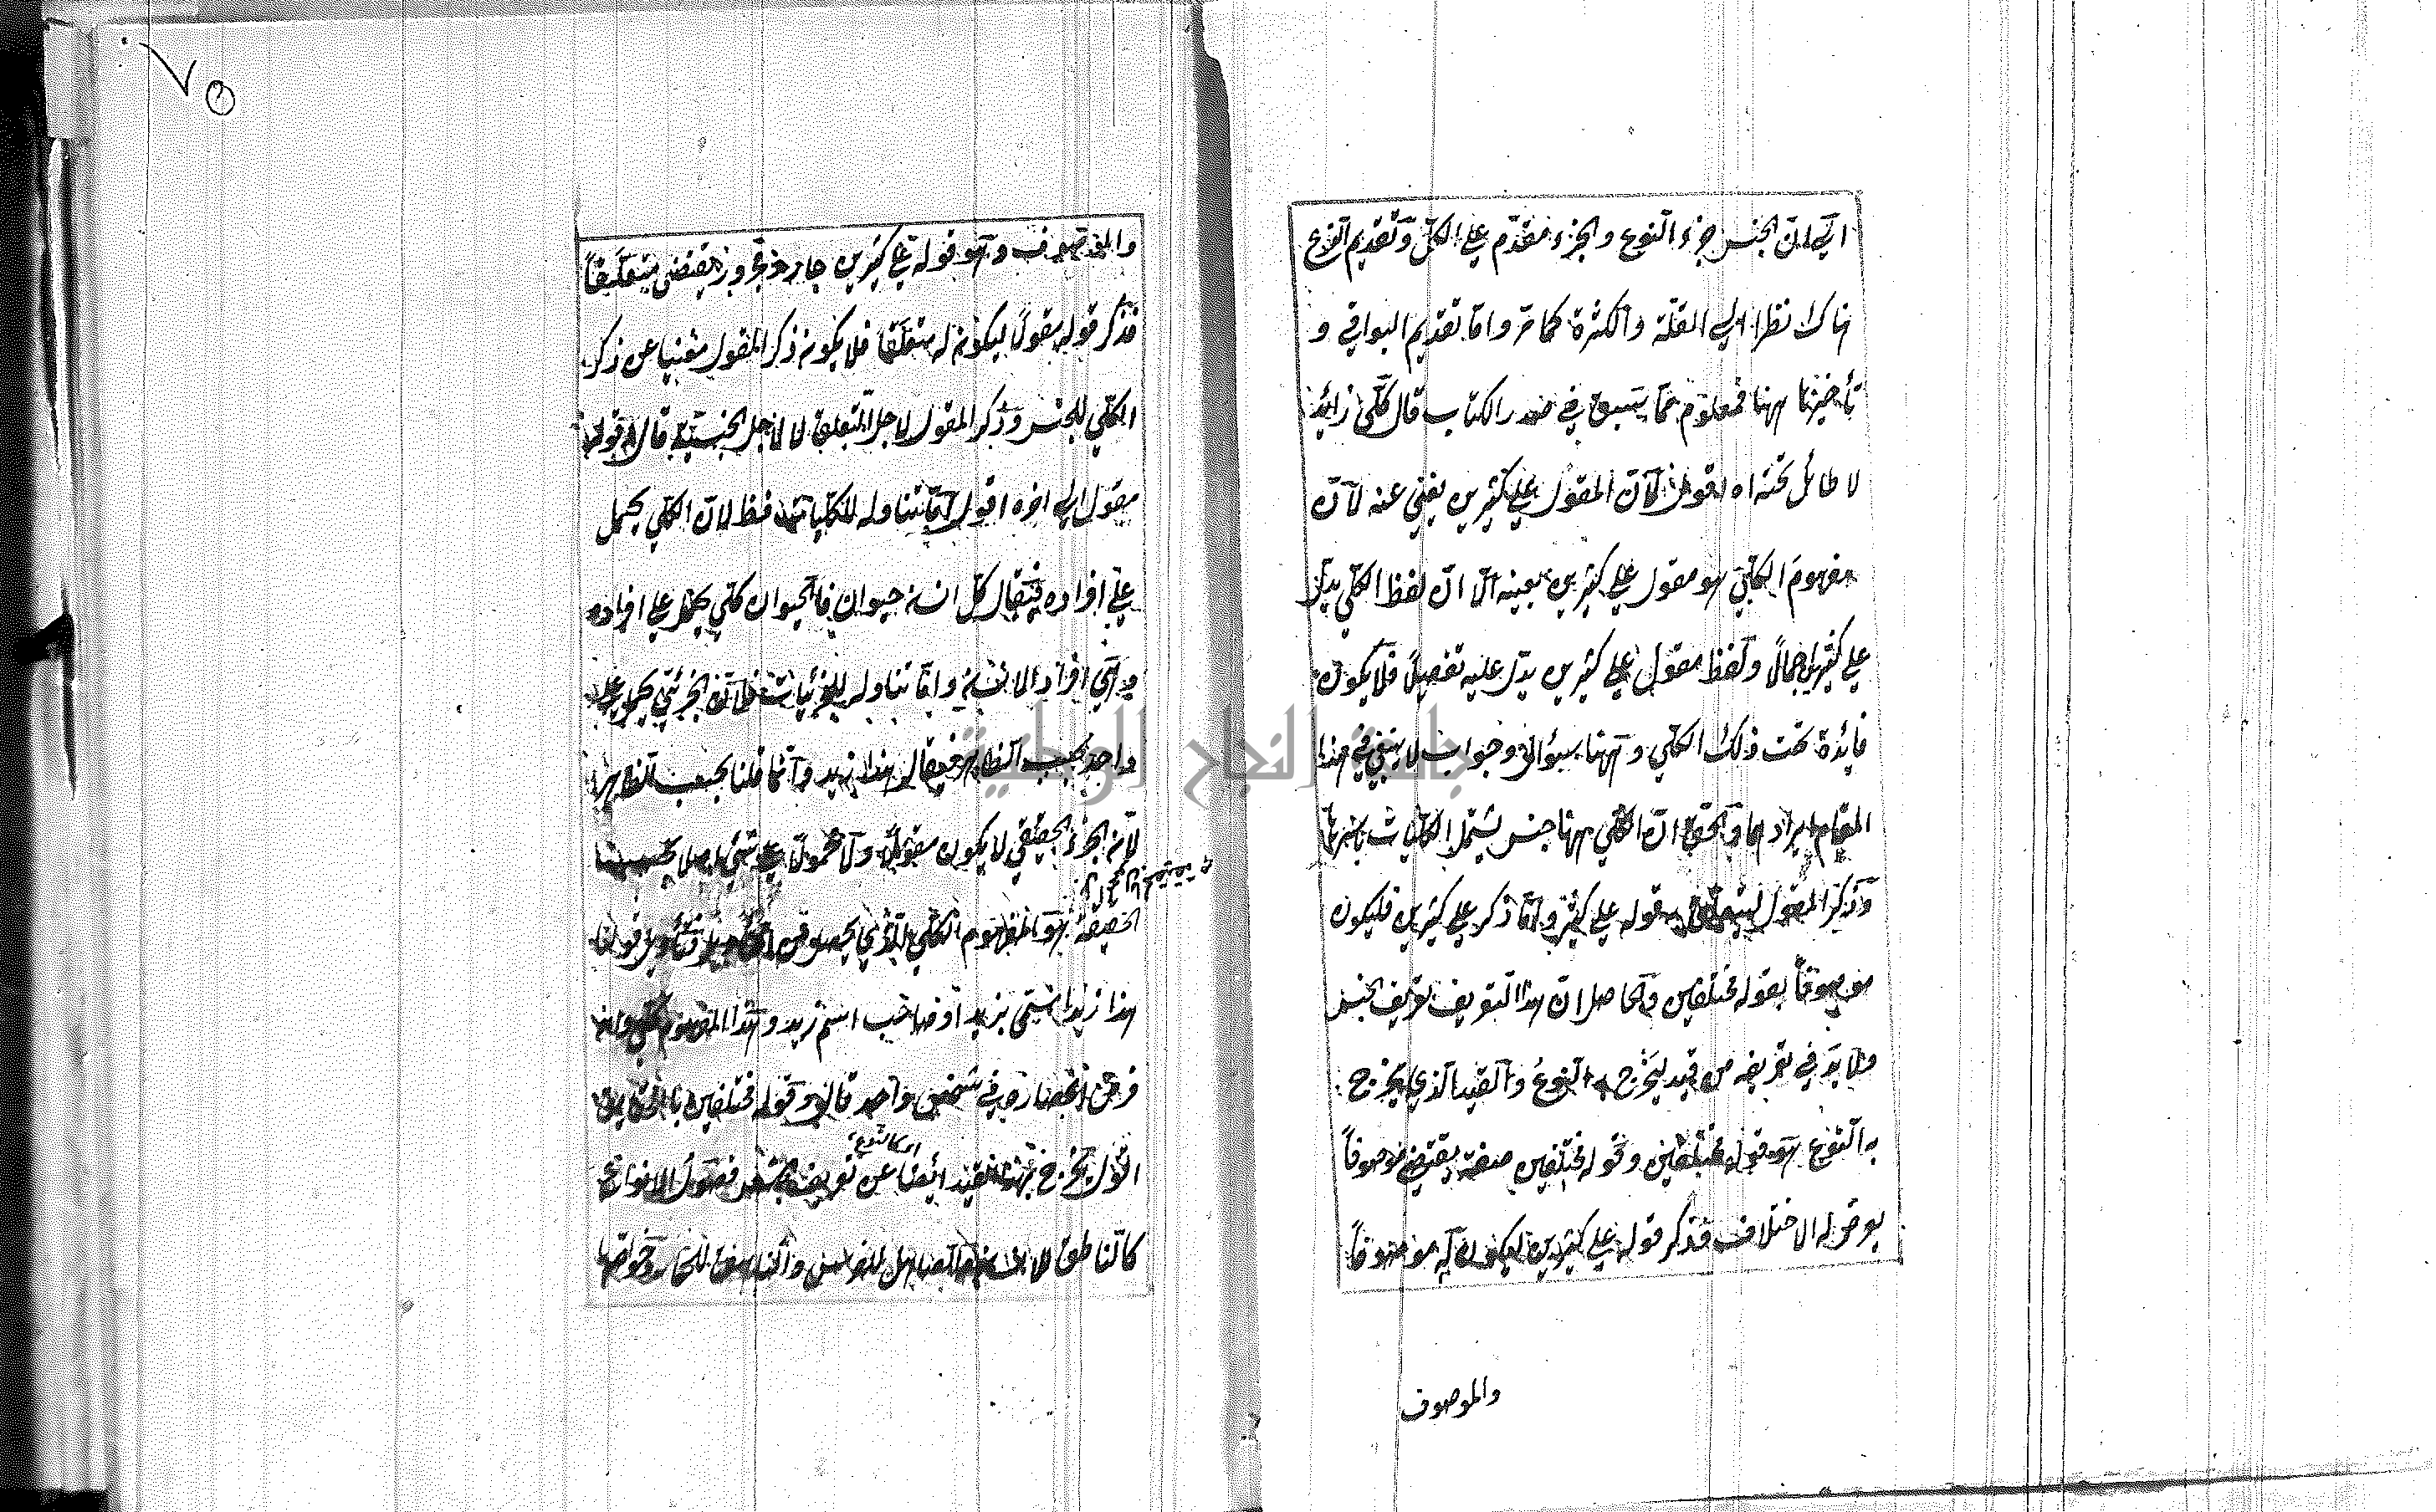 الى ان الجنس جزء النوع والجزء مقدم على الكل وتقديم النوع
هناك نظرا الى القلة والكثرة كما مر واما تقديم البواقي و
تأخيرها ههنا فمعلوم مما يسبق في صدر الكتاب قال كلي زائد
لا طائل تحته اه اقول لان المقول على كثيرين يغني عنه لان
مفهوم الكلي هو مقول على كثيرين بعينه الا ان لفظ الكلي يدل
على كثيرين اجمالاً ولفظ مقول على كثيرين يدل عليه تفصيلاً فلا يكون
فائدة تحت ذلك الكلي وههنا سؤال وجواب لا ينبغي في هذا
المقام ايرادهما والحق ان الكلي ههنا جنس يشتمل الكليات باسرها
وذكر المقول ليتعلق بقوله على كثيرين وانما ذكر على كثيرين فليكون
موصوفاً بقوله مختلفين والحاصل ان هذا التعريف تعريف الجنس
ولا بد في تعريفه من قيد ليخرج به النوع والقيد الذي يخرج
به النوع هو قوله مختلفين وقوله مختلفين صفة يقتضي موصوفاً
يعرض له الاختلاف فذكر قوله على كثيرين ليكون له موصوفاً
والموصوف
٧٥
والموصوف وهو قوله على كثيرين جار ومجرور يقتضي متعلقاً
فذكر قوله مقولاً ليكون له متعلقا فلا يكون ذكر المقول مغنيا عن ذكر
الكلي للجنس وذكر المقول لاجل التعلق لا لاجل الجنسية قال قوله
مقول الى اخره اقول اما تناوله للكليات فظ لان الكلي يحمل
على افراده فيقال كل انسان حيوان فالحيوان كلي يحمل على افراده
وهي افراد الانسان واما تناوله للجزئيات فظ لان الجزئي يحمل على
واحد بحسب الظاهر فيقال هذا زيد وانما قلنا بحسب الظاهر
لان الجزء الحقيقي لا يكون مقولاً ولا محمولا على شيء اصلا بحسب
الحقيقة هو المفهوم الكلي الذي يحصل من قولنا
هذا زيد اسمى بزيد او صاحب اسم زيد وهذا المفهوم كلي وان
فرض انحصاره في شخص واحد قال وقوله مختلفين بالحقايق
اى كالنوع
اقول يخرج بهذا القيد ايضا عن تعريف الجنس فصول الانواع
كالناطق للانسان والصاهل للفرس والناهق للحمار وخواصها